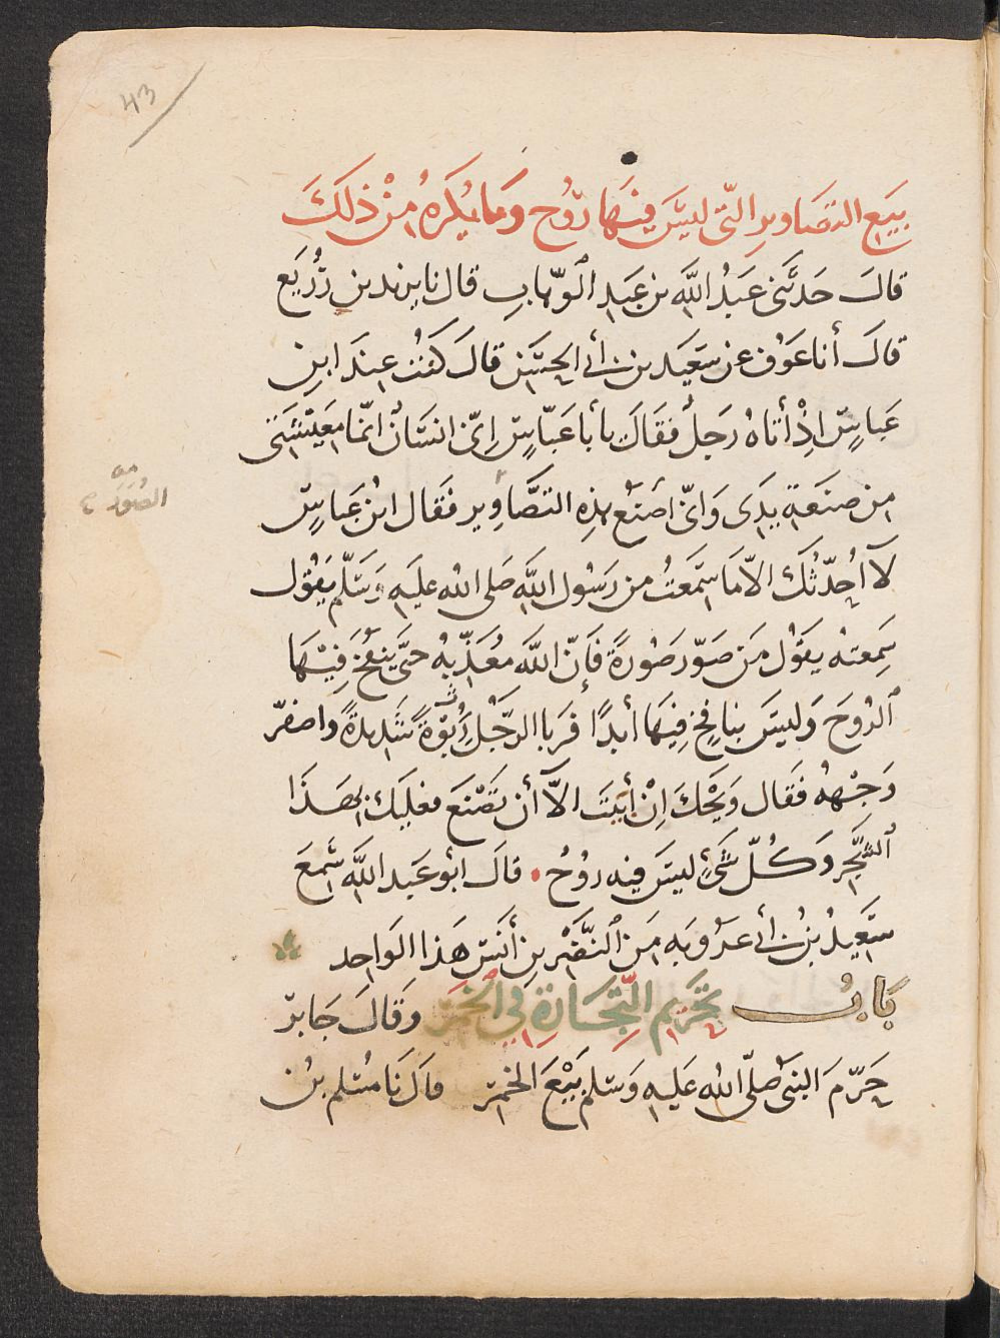 43
بَيع التصَاوير التّى ليسَ فيهَا رُوُح وَمَا يُكرَهُ مِنْ ذلكَ
قالَ حَدثَّنى عَبدُ اللَّه بن عَبدِ الوهّابِ قال نا يزيد بن زُرَيَع
قالَ أنا عَوْف عن سَعيَد بن أبى الحسَن قالَ كَنْتُ عِندَ ابنِ
عَباسٍّ اذْ أتاهُ رَجلٌ فقَالَ يا أبا عَبّاسٍّ اِنىّ انسَانٌ انمّا مَعيشَتى
من صنعَةِ يدِى وَانىّ أصنَعُ هذِه التصَّاوِير فقَال ابنُ عَباسٍّ
الصُوَر
لاَ أُحدّثُكَ الاّ مَا سَمَعتُ من رَسُول اللَّهِ صَلى الله عليَهِ وَسَلّم يَقُول
سَمِعتهُ يقَوُل مَن صَوّر صُورةً فَإنّ اللَّهَ مُعَذّبهُ حتىَّ ينَفُخَ فيْهَا
الرّوُحَ وَليسَ بنافِخٍ فيهَا أبدًا فرَبا الرّجُل رَبْوَةً شَديدةً واصفرّ
وَجْههُ فقَال وَيحْكَ اِنْ أبَيتَ الاّ أن تصَنْعَ فعَليَكَ بهَذَا
الشَّجَرِ وَكُلّ شَىءٍ ليسَ فيه رُوُحُ • قالَ ابُو عَبد اللَّهِ سَمعَ
سَعيدُ بنُ أبى عَرُوبَه مِنَ النَّضْرِ بنِ أنَسٍ هَذا الوَاحِد
بَابُ تحَرَيم التّجَارَةِ فى الخَمْر وَقالَ جَابرٌ
حَرّمَ النبىُّ صلّى الله عَليَه وَسَلم بَيْعَ الخمْر قالَ نَا مُسْلم بنُ